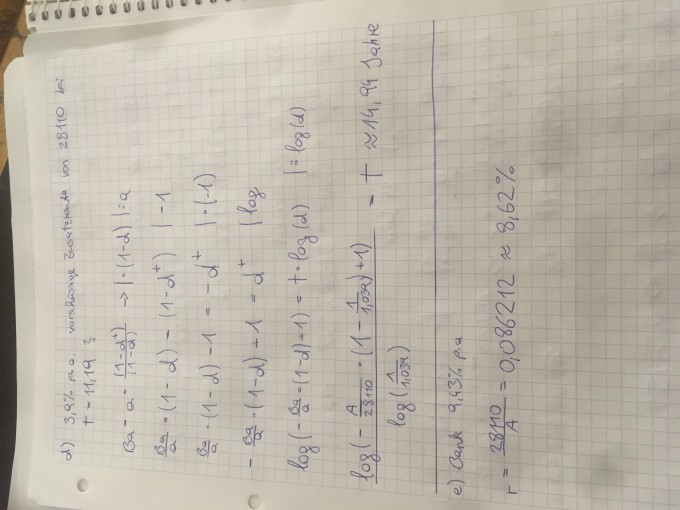 d) 3,9% p.a. vorschüssige Zusatzrente von 28110 bei
t = 11,19 ?
Ba = a · (1-d^t)/(1-d) -> | · (1-d) | : a
Ba/a · (1-d) = (1-d^t) | -1
Ba/a · (1-d) -1 = -d^t | · (-1)
- Ba/a · (1-d) +1 = d^t | log
log(- Ba/a · (1-d) +1) = t · log(d) | : log(d)
log(- A/28110 · (1 - 1/1,039) +1) / log(1/1,039) = t ≈ 14,94 Jahre
e) Bank 9,43% p.a
r = 28110/A = 0,086212 ≈ 8,62%